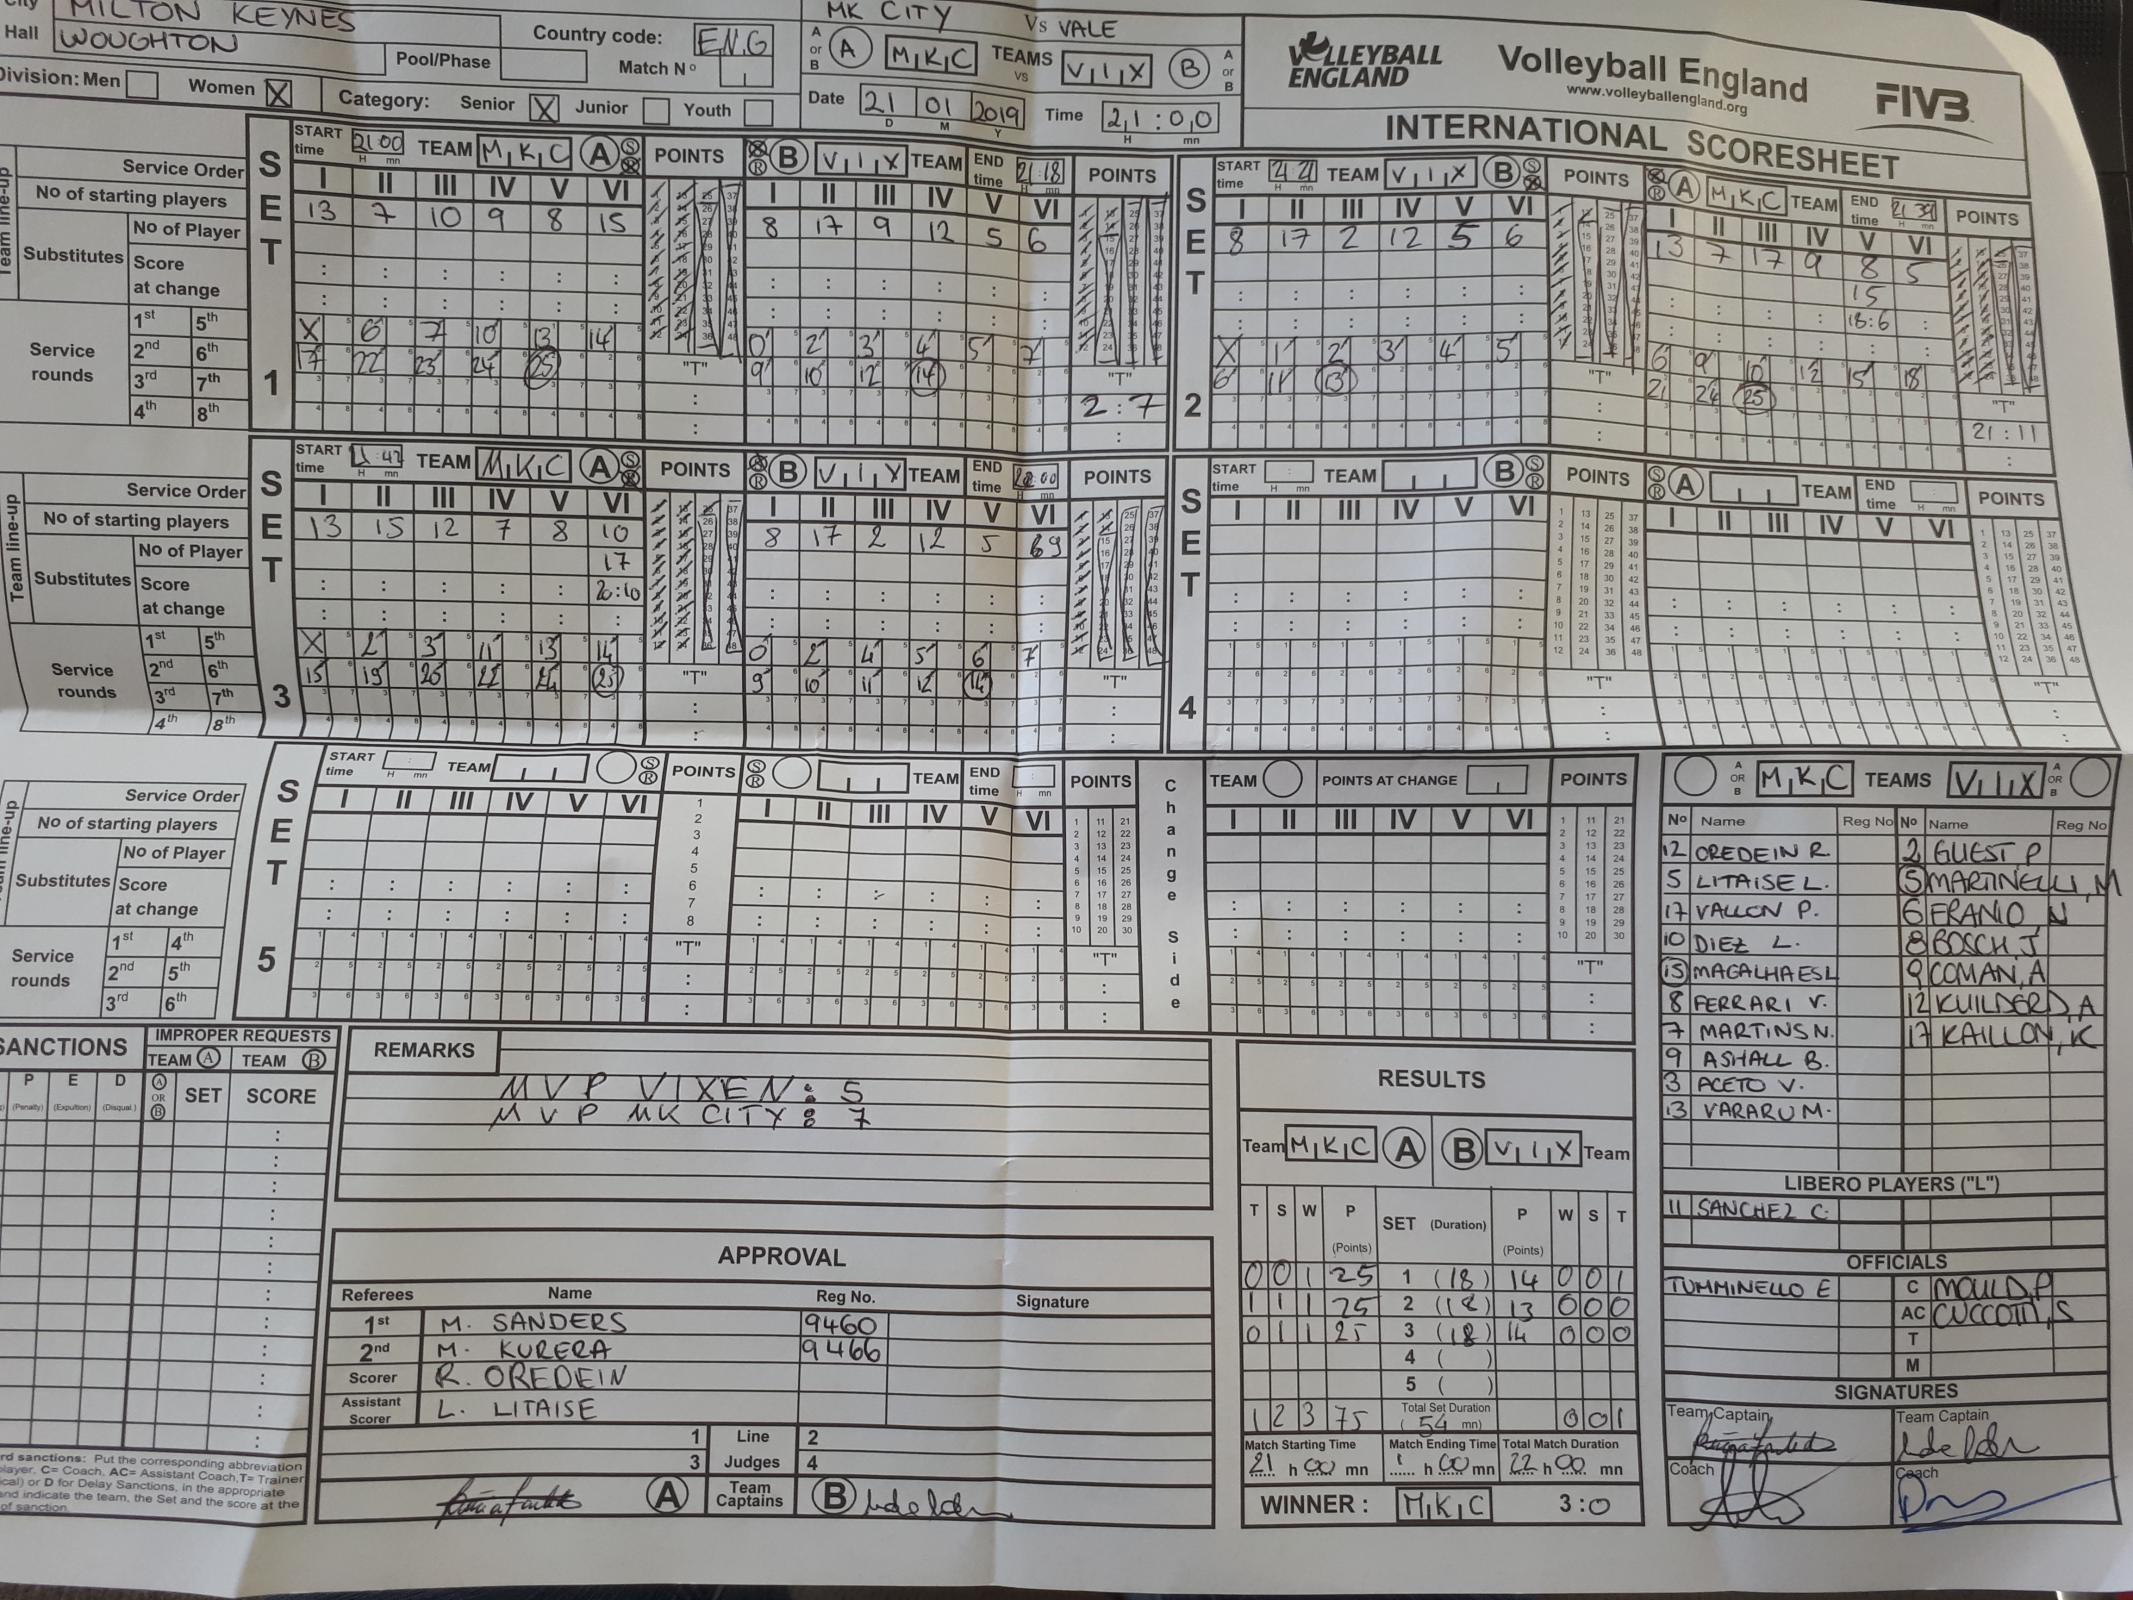 City MILTON KEYNES
Hall WOUGHTON
Country code: ENG
Pool/Phase
Match Nº
Division: Men Women X
Category: Senior X Junior Youth
MK CITY Vs VALE
A or B A M K C TEAMS vs V I X B A or B
Date 21 01 2019 Time 21:00
D M Y H mn
VOLLEYBALL ENGLAND
Volleyball England
www.volleyballengland.org
FIVB
INTERNATIONAL SCORESHEET
Team line-up
Service Order
No of starting players
Substitutes
No of Player
Score at change
Service rounds
1st 5th
2nd 6th
3rd 7th
4th 8th
SET 1
START time 21:00 TEAM M K C A S R POINTS
I II III IV V VI
13 7 10 9 8 15
X 6 7 10 13 14
17 22 23 24 25
"T"
S R B V I X TEAM END time 21:18 POINTS
I II III IV V VI
8 17 9 12 5 6
0 2 3 4 5 7
9 10 12 14
"T"
2:7
SET 2
START time 21:21 TEAM V I X B S R POINTS
I II III IV V VI
8 17 2 12 5 6
X 1 2 3 4 5
6 11 13
"T"
S R A M K C TEAM END time 21:39 POINTS
I II III IV V VI
13 7 17 9 8 5
15
18:6
6 9 10 12 15 18
21 24 25
"T"
21:11
Team line-up
Service Order
No of starting players
Substitutes
No of Player
Score at change
Service rounds
1st 5th
2nd 6th
3rd 7th
4th 8th
SET 3
START time 21:42 TEAM M K C A S R POINTS
I II III IV V VI
13 15 12 7 8 10
17
20:10
X 2 3 11 13 14
15 19 20 22 24 25
"T"
S R B V I X TEAM END time 22:00 POINTS
I II III IV V VI
8 17 2 12 5 9
0 2 4 5 6 7
9 10 11 12 14
"T"
SET 4
START time TEAM B S R POINTS
I II III IV V VI
"T"
S R A TEAM END time POINTS
I II III IV V VI
"T"
Service Order
No of starting players
Substitutes
No of Player
Score at change
Service rounds
1st 4th
2nd 5th
3rd 6th
SET 5
START time TEAM S R POINTS
I II III IV V VI
1 2 3 4 5 6 7 8
"T"
S R TEAM END time POINTS
I II III IV V VI
"T"
Change Side
TEAM POINTS AT CHANGE POINTS
I II III IV V VI
"T"
A OR B M K C TEAMS V I X A OR B
Nº Name Reg No Nº Name Reg No
12 OREDEIN R. 2 GUEST, P
5 LITAISE L. 5 MARTINELLI, M
17 VALLON P. 6 FRANIO, N
10 DIEZ L. 8 BOSCH, J
15 MAGALHAES L 9 COMAN, A
8 FERRARI V. 12 KUILDERD, A
7 MARTINS N. 17 KAILLON, K
9 ASHALL B.
3 ACETO V.
13 VARARU M.
LIBERO PLAYERS ("L")
11 SANCHEZ C.
OFFICIALS
TUMMINELLO E C MOULD, P
AC CUCCOTTI, S
T
M
SIGNATURES
Team Captain Team Captain
Coach Coach
SANCTIONS
IMPROPER REQUESTS
TEAM A TEAM B
P (Penalty) E (Expultion) D (Disqual.) A OR B SET SCORE
rd sanctions: Put the corresponding abbreviation
layer, C= Coach, AC= Assistant Coach, T= Trainer
ical) or D for Delay Sanctions, in the appropriate
and indicate the team, the Set and the score at the
of sanction.
REMARKS
MVP VIXEN: 5
MVP MK CITY: 7
APPROVAL
Referees Name Reg No. Signature
1st M. SANDERS 9460
2nd M. KURERA 9466
Scorer R. OREDEIN
Assistant Scorer L. LITAISE
1 Line 2
3 Judges 4
A Team Captains B
RESULTS
Team M K C A B V I X Team
T S W P (Points) SET (Duration) P (Points) W S T
0 0 1 25 1 (18) 14 0 0 1
1 1 1 25 2 (18) 13 0 0 0
0 1 1 25 3 (18) 14 0 0 0
4 ( )
5 ( )
1 2 3 75 Total Set Duration (54 mn) 0 0 1
Match Starting Time Match Ending Time Total Match Duration
21 h 00 mn 1 h 00 mn 22 h 00 mn
WINNER: M K C 3:0